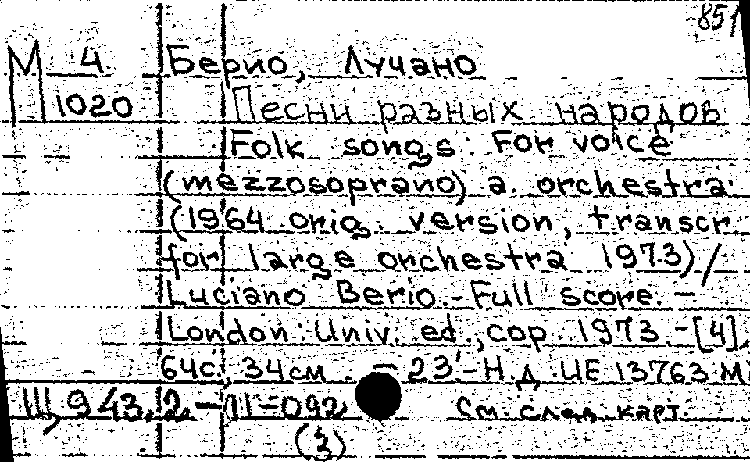 851
М 4 Берио, Лучано
1020 Песни разных народов
Folk songs: For voice
(mezzosoprano) a. orchestra
(1964 orig. version, transcr.
for large orchestra 1973) /
Luciano Berio. - Full score. -
London: Univ. ed., cop. 1973. - [4],
64с.; 34см. - 23'- Н.д. UE 13763 М
III, 943, 2 - II-092 См. след. карт.
(3)